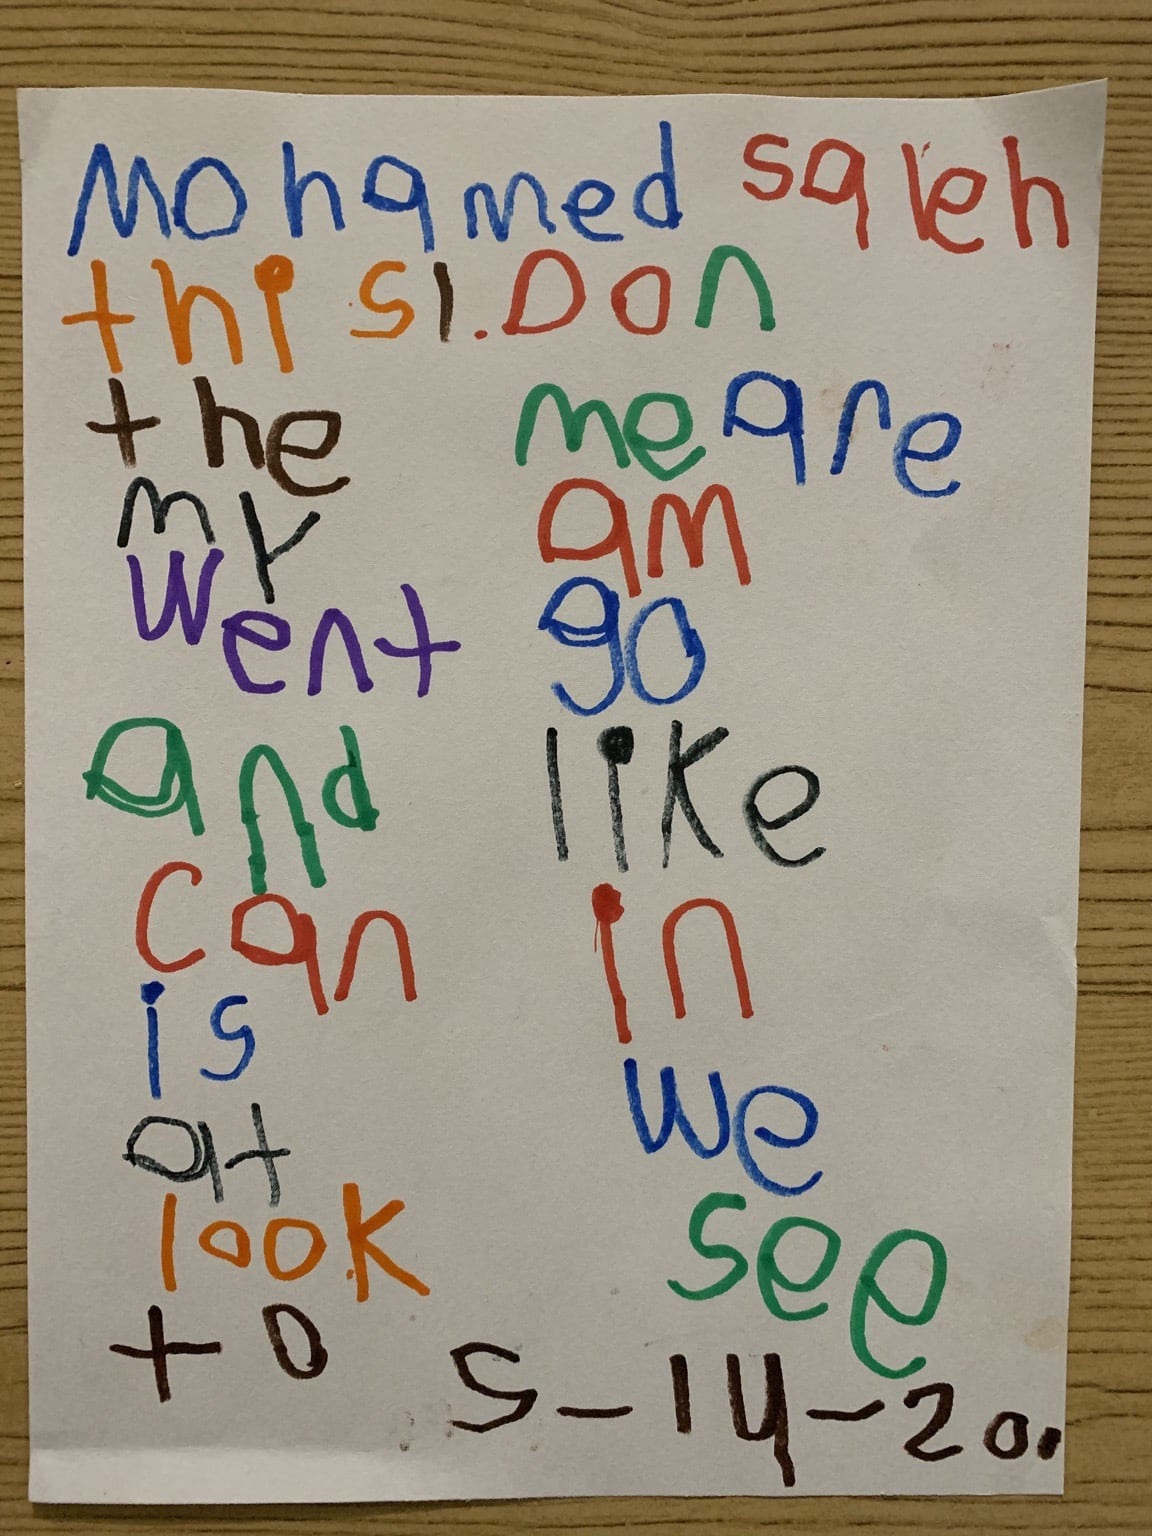 Mohamed saleh
this 1. Don
the me are
my am
went go
and like
can in
is we
at see
look
to 5-14-20